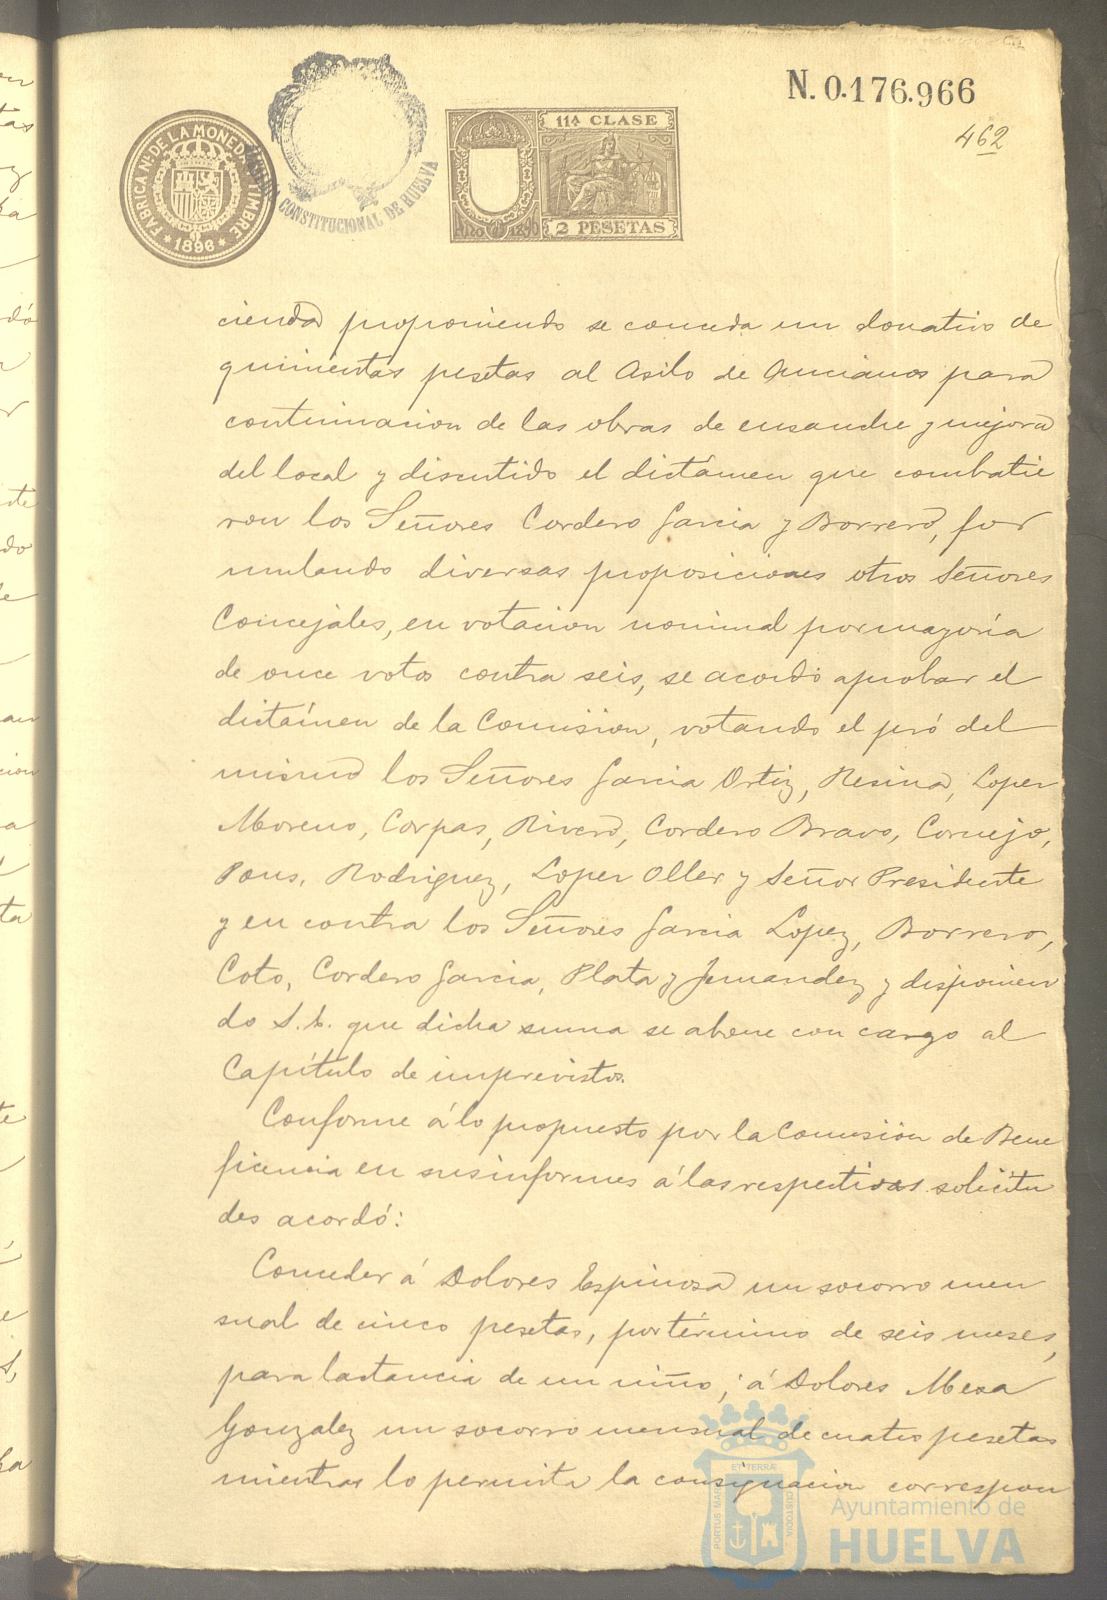 N. 0.176.966
462
FABRICA NAL DE LA MONEDA Y TIMBRE
* 1896 *
CONSTITUCIONAL DE HUELVA
11ª CLASE
Año de 1896
2 PESETAS
cienda proponiendo se conceda un donativo de
quinientas pesetas al Asilo de Ancianos para
continuacion de las obras de ensanche y mejora
del local y discutido el dictámen que combatie
ron los Señores Cordero Garcia y Borrero, for
mulando diversas proposiciones otros Señores
Concejales, en votacion nominal por mayoría
de once votos contra seis, se acordó aprobar el
dictámen de la Comision, votando el pró del
mismo los Señores Garcia Ortiz, Resina, Lopez
Moreno, Corpas, Rivero, Cordero Bravo, Cornejo,
Pons, Rodriguez, Lopez Oller y Señor Presidente
y en contra los Señores Garcia Lopez, Borrero,
Coto, Cordero Garcia, Plata y Fernandez y disponien
do S.E. que dicha suma se abone con cargo al
Capítulo de imprevistos.
Conforme á lo propuesto por la Comisión de Bene
ficencia en sus informes á las respectivas solicitu
des acordó:
Conceder á Dolores Espinosa un socorro men
sual de cinco pesetas, por término de seis meses,
para lactancia de un niño; á Dolores Mesa
Gonzalez un socorro mensual de cuatro pesetas
mientras lo permita la consignacion correspon
PORTUS MARIS ET TERRÆ CUSTODIA
Ayuntamiento de
HUELVA